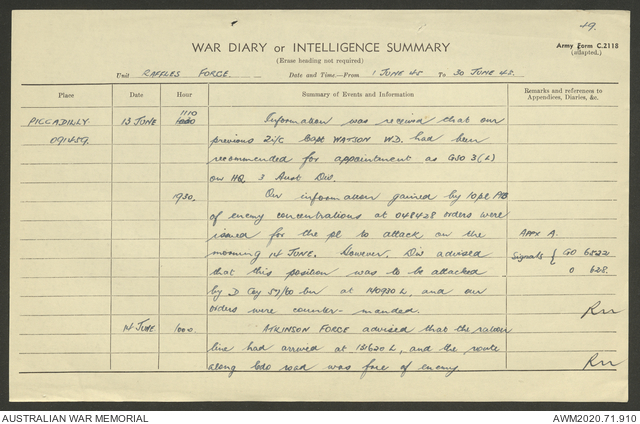 49.
WAR DIARY or INTELLIGENCE SUMMARY
Army Form C.2118
(adapted.)
(Erase heading not required)
Unit RAFFLES FORCE Date and Time.—From 1 JUNE 45 To 30 JUNE 45.
Place Date Hour Summary of Events and Information Remarks and references to
Appendices, Diaries, &c.
PICCADILLY 13 JUNE 1110 Information was received that our
091459. previous 2i/c Capt WATSON W.D. had been
recommended for appointment as GSO 3 (L)
on HQ 3 Aust Div.
1930. On information gained by 10 pl
of enemy concentrations at 048428 orders were
issued for the pl to attack on the APPX A.
morning 14 JUNE. However, Div advised Signals { GO 6522
that this position was to be attacked O 628.
by D Coy 57/60 bn at 140930 L, and our
orders were counter-manded.
14 JUNE 1000. ATKINSON FORCE advised that the
line had arrived at 131620 L, and the route
along road was free of enemy
AUSTRALIAN WAR MEMORIAL
AWM2020.71.910